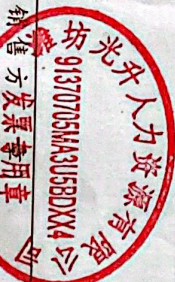 坊光升人力资源有限公司
91370705MA3U5BDXX4
销售方
发票专用章